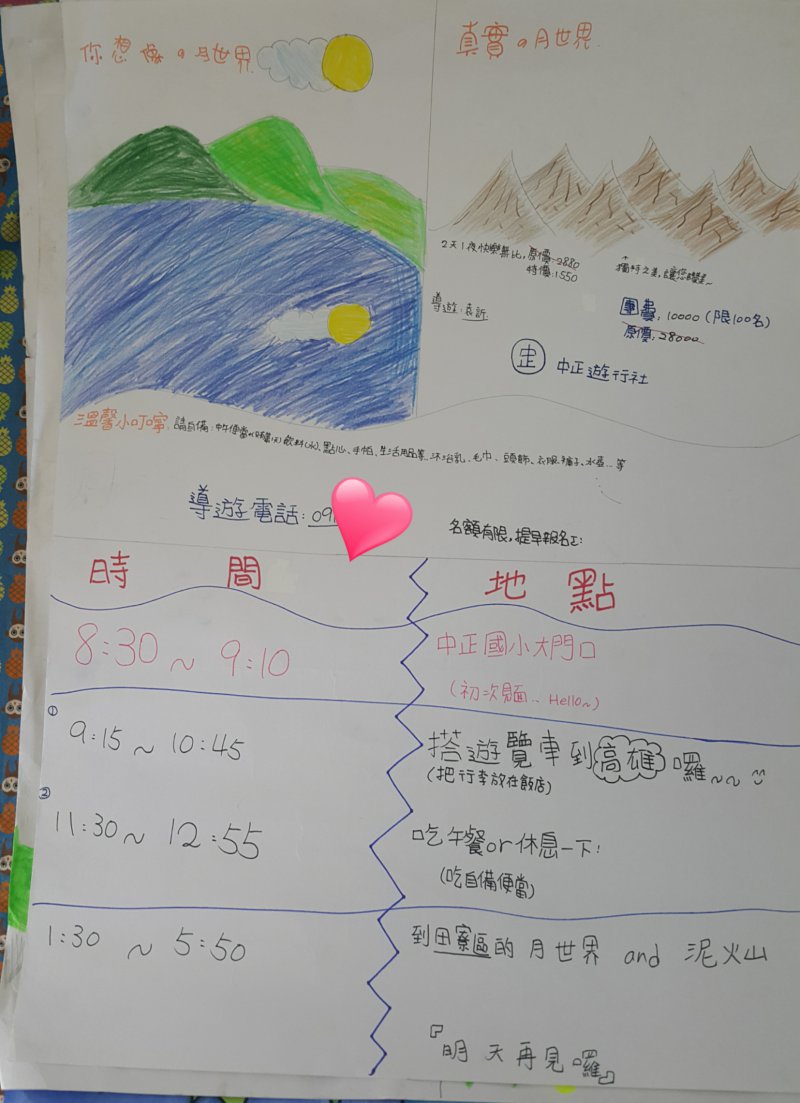 你想像の月世界
真實の月世界
2天1夜快樂無比,原價:2880
特價:1550
獨特之美,讓您讚嘆~
導遊:袁訢
團費:10000(限100名)
原價:28000
中正遊行社
溫馨小叮嚀:請自備:中午便當 飲料(水)、點心、手帕、生活用品等、沐浴乳、毛巾、頭飾、衣服、褲子、水壺...等
導遊電話:09
名額有限,提早報名
時間
地點
8:30~9:10
中正國小大門口
(初次見面... Hello~)
① 9:15~10:45
搭遊覽車到高雄囉~~
(把行李放在飯店)
② 11:30~12:55
吃午餐or休息一下!
(吃自備便當)
1:30~5:50
到田寮區的月世界 and 泥火山
『明天再見囉』